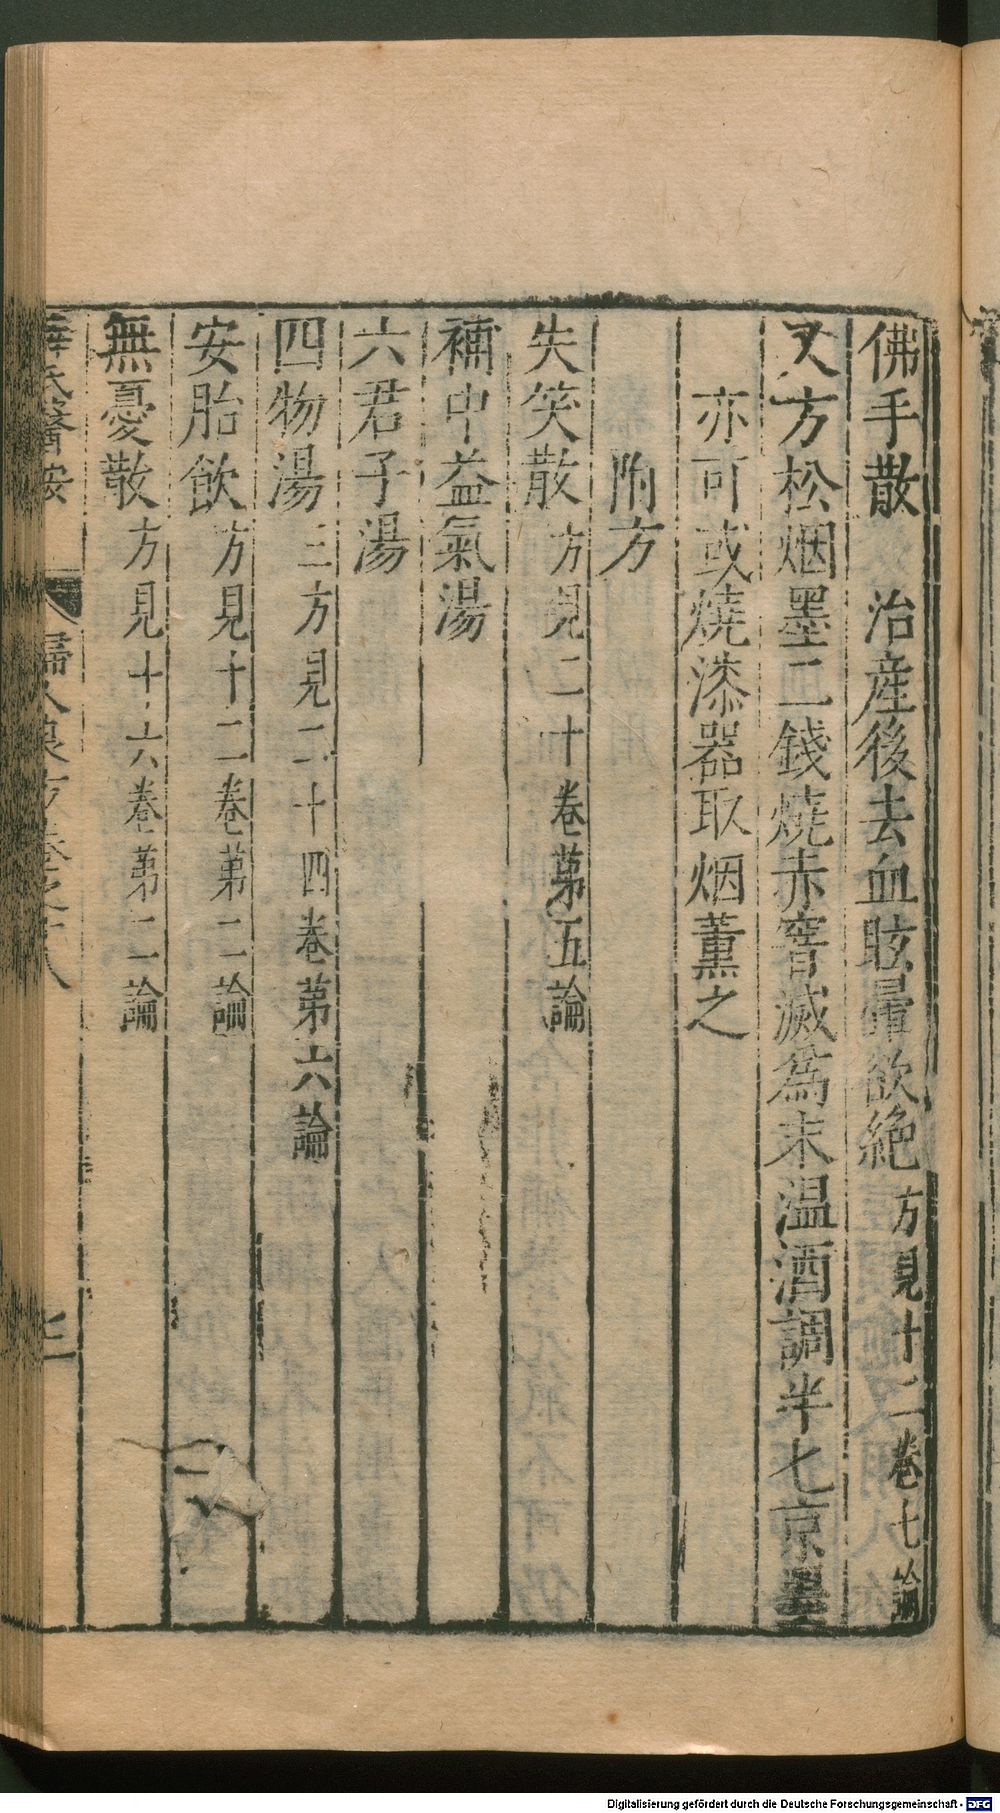 佛手散　治産後去血眩暈欲絶方見十二卷七論
又方松烟墨二錢燒赤窨滅爲末温酒調半七京墨
亦可或燒漆器取烟薰之
附方
失笑散方見二十卷第五論
補中益氣湯
六君子湯
四物湯三方見二十四卷第六論
安胎飲方見十二卷第二論
無憂散方見十六卷第二論
薛氏醫按　婦人良方卷之十八
Digitalisierung gefördert durch die Deutsche Forschungsgemeinschaft - DFG